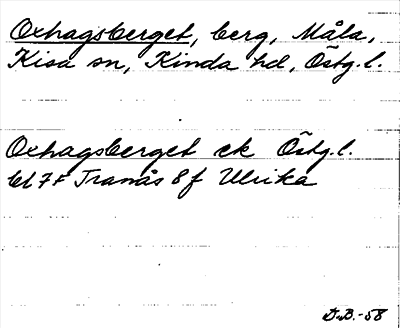 Oxhagsberget, berg, Måla,
Kisa sn, Kinda hd, Östg.l.
Oxhagsberget ek Östg.l.
bl 7 f Tranås 8 f Ulrika
D.B.-58